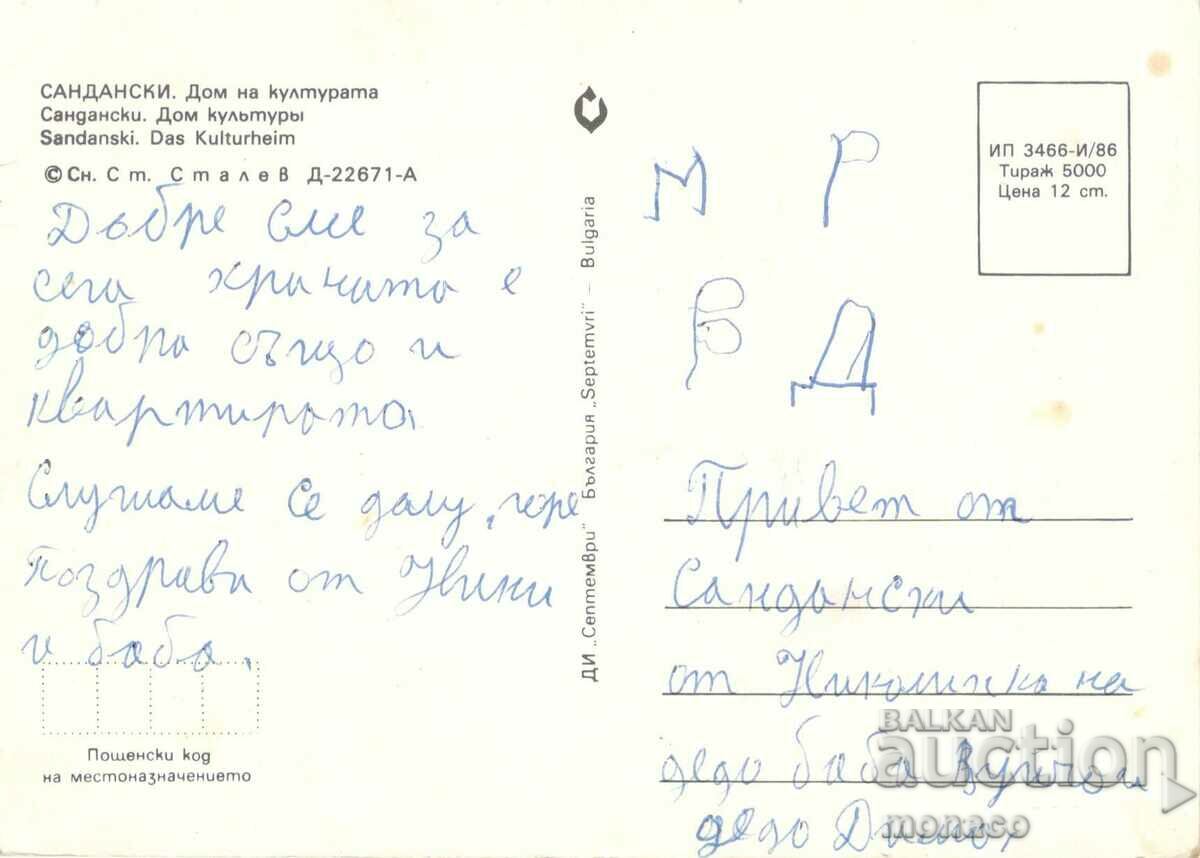 САНДАНСКИ. Дом на културата
Сандански. Дом культуры
Sandanski. Das Kulturheim
© Сн. Ст. Сталев Д-22671-А
Дъбре сме за
сега храната е
добра също и
квартирата
Слушаме се
поздрави от
и баба.
Пощенски код
на местоназначението
ДИ „Септември" България „Septemvri" – Bulgaria
М Р
В Д
ИП 3466-И/86
Тираж 5000
Цена 12 ст.
Привет от
Сандански
от на
дедо баба
дедо
BALKAN
auction
monaco